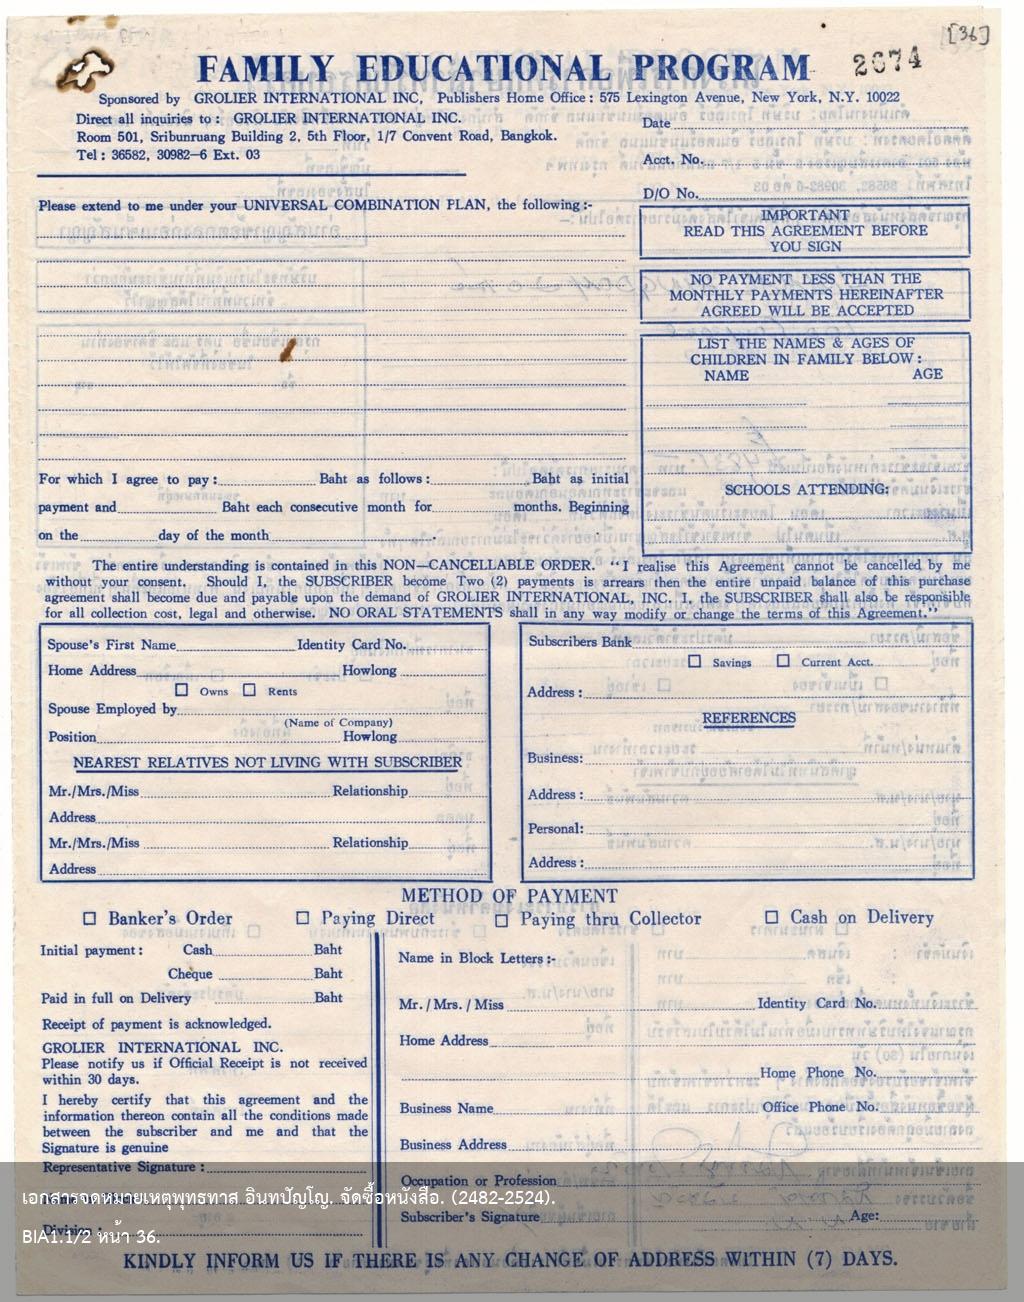 [36]
2674
FAMILY EDUCATIONAL PROGRAM
Sponsored by GROLIER INTERNATIONAL INC, Publishers Home Office : 575 Lexington Avenue, New York, N.Y. 10022
Direct all inquiries to : GROLIER INTERNATIONAL INC.
Room 501, Sribunruang Building 2, 5th Floor, 1/7 Convent Road, Bangkok.
Tel : 36582, 30982-6 Ext. 03
Date
Acct. No.
D/O No.
Please extend to me under your UNIVERSAL COMBINATION PLAN, the following :-
IMPORTANT
READ THIS AGREEMENT BEFORE
YOU SIGN
NO PAYMENT LESS THAN THE
MONTHLY PAYMENTS HEREINAFTER
AGREED WILL BE ACCEPTED
LIST THE NAMES & AGES OF
CHILDREN IN FAMILY BELOW :
NAME AGE
SCHOOLS ATTENDING:
For which I agree to pay : Baht as follows : Baht as initial
payment and Baht each consecutive month for months. Beginning
on the day of the month
The entire understanding is contained in this NON-CANCELLABLE ORDER. "I realise this Agreement cannot be cancelled by me
without your consent. Should I, the SUBSCRIBER become Two (2) payments is arrears then the entire unpaid balance of this purchase
agreement shall become due and payable upon the demand of GROLIER INTERNATIONAL, INC. I, the SUBSCRIBER shall also be responsible
for all collection cost, legal and otherwise. NO ORAL STATEMENTS shall in any way modify or change the terms of this Agreement."
Spouse's First Name Identity Card No.
Home Address Howlong
☐ Owns ☐ Rents
Spouse Employed by
(Name of Company)
Position Howlong
NEAREST RELATIVES NOT LIVING WITH SUBSCRIBER
Mr./Mrs./Miss Relationship
Address
Mr./Mrs./Miss Relationship
Address
Subscribers Bank
☐ Savings ☐ Current Acct.
Address :
REFERENCES
Business:
Address :
Personal:
Address :
METHOD OF PAYMENT
☐ Banker's Order ☐ Paying Direct ☐ Paying thru Collector ☐ Cash on Delivery
Initial payment : Cash Baht
Cheque Baht
Paid in full on Delivery Baht
Receipt of payment is acknowledged.
GROLIER INTERNATIONAL INC.
Please notify us if Official Receipt is not received
within 30 days.
I hereby certify that this agreement and the
information thereon contain all the conditions made
between the subscriber and me and that the
Signature is genuine
Representative Signature :
Division :
Name in Block Letters :-
Mr. / Mrs. / Miss Identity Card No.
Home Address
Home Phone No.
Business Name Office Phone No.
Business Address
Occupation or Profession
Subscriber's Signature Age:
เอกสารจดหมายเหตุพุทธทาส อินทปัญโญ. จัดซื้อหนังสือ. (2482-2524).
BIA1.1/2 หน้า 36.
KINDLY INFORM US IF THERE IS ANY CHANGE OF ADDRESS WITHIN (7) DAYS.